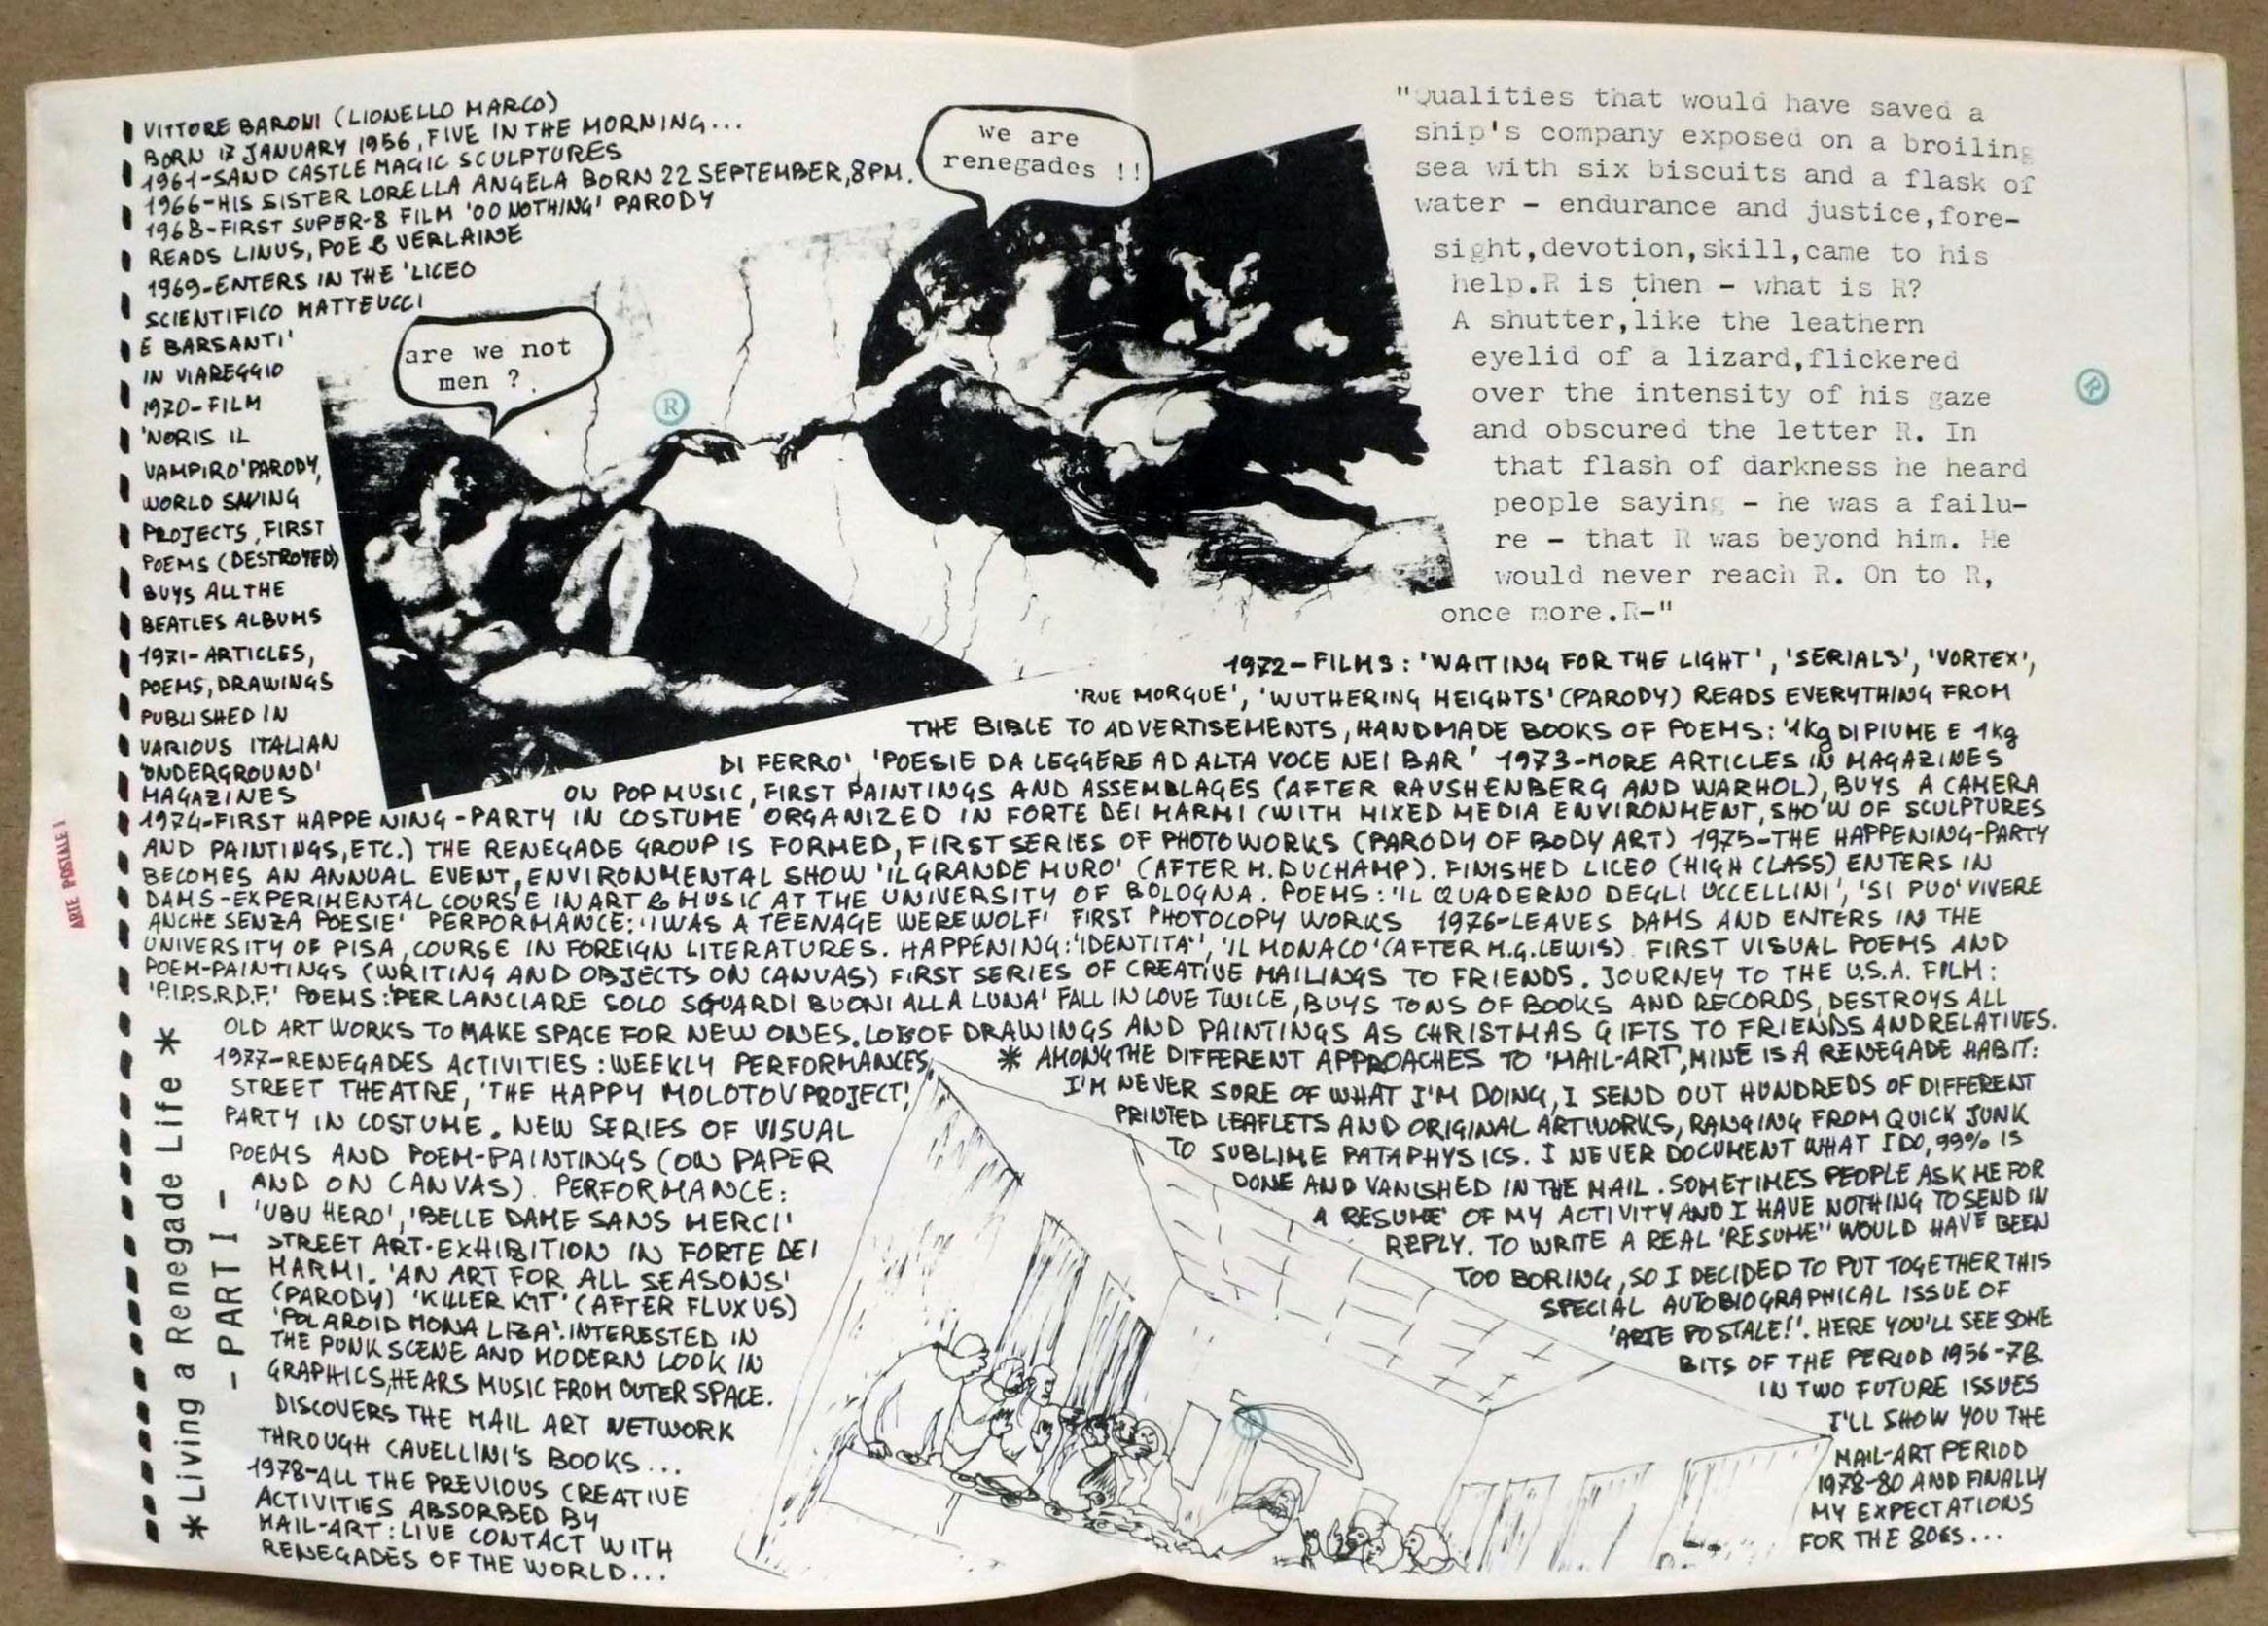 VITTORE BARONI (LIONELLO MARCO)
BORN 17 JANUARY 1956, FIVE IN THE MORNING...
1961-SAND CASTLE MAGIC SCULPTURES
1966-HIS SISTER LORELLA ANGELA BORN 22 SEPTEMBER, 8PM.
1968-FIRST SUPER-8 FILM 'OO NOTHING' PARODY
READS LINUS, POE & VERLAINE
1969-ENTERS IN THE 'LICEO
SCIENTIFICO MATTEUCCI
E BARSANTI'
IN VIAREGGIO
1970-FILM
'NORIS IL
VAMPIRO' PARODY,
WORLD SAVING
PROJECTS, FIRST
POEMS (DESTROYED)
BUYS ALL THE
BEATLES ALBUMS
1971-ARTICLES,
POEMS, DRAWINGS
PUBLISHED IN
VARIOUS ITALIAN
'UNDERGROUND'
MAGAZINES
are we not
men ?
we are
renegades !!
®
"Qualities that would have saved a
ship's company exposed on a broiling
sea with six biscuits and a flask of
water - endurance and justice,fore-
sight,devotion,skill,came to his
help.R is then - what is R?
A shutter,like the leathern
eyelid of a lizard,flickered
over the intensity of his gaze
and obscured the letter R. In
that flash of darkness he heard
people saying - he was a failu-
re - that R was beyond him. He
would never reach R. On to R,
once more.R-"
®
1972-FILMS: 'WAITING FOR THE LIGHT', 'SERIALS', 'VORTEX',
'RUE MORGUE', 'WUTHERING HEIGHTS' (PARODY) READS EVERYTHING FROM
THE BIBLE TO ADVERTISEMENTS, HANDMADE BOOKS OF POEMS: '1Kg DI PIUME E 1Kg
DI FERRO', 'POESIE DA LEGGERE AD ALTA VOCE NEI BAR' 1973-MORE ARTICLES IN MAGAZINES
ON POP MUSIC, FIRST PAINTINGS AND ASSEMBLAGES (AFTER RAUSHENBERG AND WARHOL), BUYS A CAMERA
1974-FIRST HAPPENING-PARTY IN COSTUME ORGANIZED IN FORTE DEI MARMI (WITH MIXED MEDIA ENVIRONMENT, SHOW OF SCULPTURES
AND PAINTINGS, ETC.) THE RENEGADE GROUP IS FORMED, FIRST SERIES OF PHOTOWORKS (PARODY OF BODY ART) 1975-THE HAPPENING-PARTY
BECOMES AN ANNUAL EVENT, ENVIRONMENTAL SHOW 'IL GRANDE MURO' (AFTER M. DUCHAMP). FINISHED LICEO (HIGH CLASS) ENTERS IN
DAMS-EXPERIMENTAL COURSE IN ART & MUSIC AT THE UNIVERSITY OF BOLOGNA. POEMS: 'IL QUADERNO DEGLI UCCELLINI', 'SI PUO' VIVERE
ANCHE SENZA POESIE' PERFORMANCE: 'I WAS A TEENAGE WEREWOLF' FIRST PHOTOCOPY WORKS 1976-LEAVES DAMS AND ENTERS IN THE
UNIVERSITY OF PISA, COURSE IN FOREIGN LITERATURES. HAPPENING: 'IDENTITA'', 'IL MONACO' (AFTER M.G. LEWIS) FIRST VISUAL POEMS AND
POEM-PAINTINGS (WRITING AND OBJECTS ON CANVAS) FIRST SERIES OF CREATIVE MAILINGS TO FRIENDS. JOURNEY TO THE U.S.A. FILM:
'P.I.P.S.R.D.F.' POEMS: 'PER LANCIARE SOLO SGUARDI BUONI ALLA LUNA' FALL IN LOVE TWICE, BUYS TONS OF BOOKS AND RECORDS, DESTROYS ALL
OLD ART WORKS TO MAKE SPACE FOR NEW ONES. LOTS OF DRAWINGS AND PAINTINGS AS CHRISTMAS GIFTS TO FRIENDS AND RELATIVES.
1977-RENEGADES ACTIVITIES: WEEKLY PERFORMANCES,
STREET THEATRE, 'THE HAPPY MOLOTOV PROJECT!
PARTY IN COSTUME. NEW SERIES OF VISUAL
POEMS AND POEM-PAINTINGS (ON PAPER
AND ON CANVAS). PERFORMANCE:
'UBU HERO', 'BELLE DAME SANS MERCI'
STREET ART-EXHIBITION IN FORTE DEI
MARMI. 'AN ART FOR ALL SEASONS'
(PARODY) 'KILLER KIT' (AFTER FLUXUS)
'POLAROID MONA LIZA'. INTERESTED IN
THE PUNK SCENE AND MODERN LOOK IN
GRAPHICS, HEARS MUSIC FROM OUTER SPACE.
DISCOVERS THE MAIL ART NETWORK
THROUGH CAVELLINI'S BOOKS...
1978-ALL THE PREVIOUS CREATIVE
ACTIVITIES ABSORBED BY
MAIL-ART: LIVE CONTACT WITH
RENEGADES OF THE WORLD...
* AMONG THE DIFFERENT APPROACHES TO 'MAIL-ART', MINE IS A RENEGADE HABIT:
I'M NEVER SURE OF WHAT I'M DOING, I SEND OUT HUNDREDS OF DIFFERENT
PRINTED LEAFLETS AND ORIGINAL ARTWORKS, RANGING FROM QUICK JUNK
TO SUBLIME PATAPHYSICS. I NEVER DOCUMENT WHAT I DO, 99% IS
DONE AND VANISHED IN THE MAIL. SOMETIMES PEOPLE ASK ME FOR
A RESUME' OF MY ACTIVITY AND I HAVE NOTHING TO SEND IN
REPLY. TO WRITE A REAL 'RESUME'' WOULD HAVE BEEN
TOO BORING, SO I DECIDED TO PUT TOGETHER THIS
SPECIAL AUTOBIOGRAPHICAL ISSUE OF
'ARTE POSTALE!'. HERE YOU'LL SEE SOME
BITS OF THE PERIOD 1956-78.
IN TWO FUTURE ISSUES
I'LL SHOW YOU THE
MAIL-ART PERIOD
1978-80 AND FINALLY
MY EXPECTATIONS
FOR THE 80ES...
®
* Living a Renegade Life *
- PART I -
ARTE POSTALE!